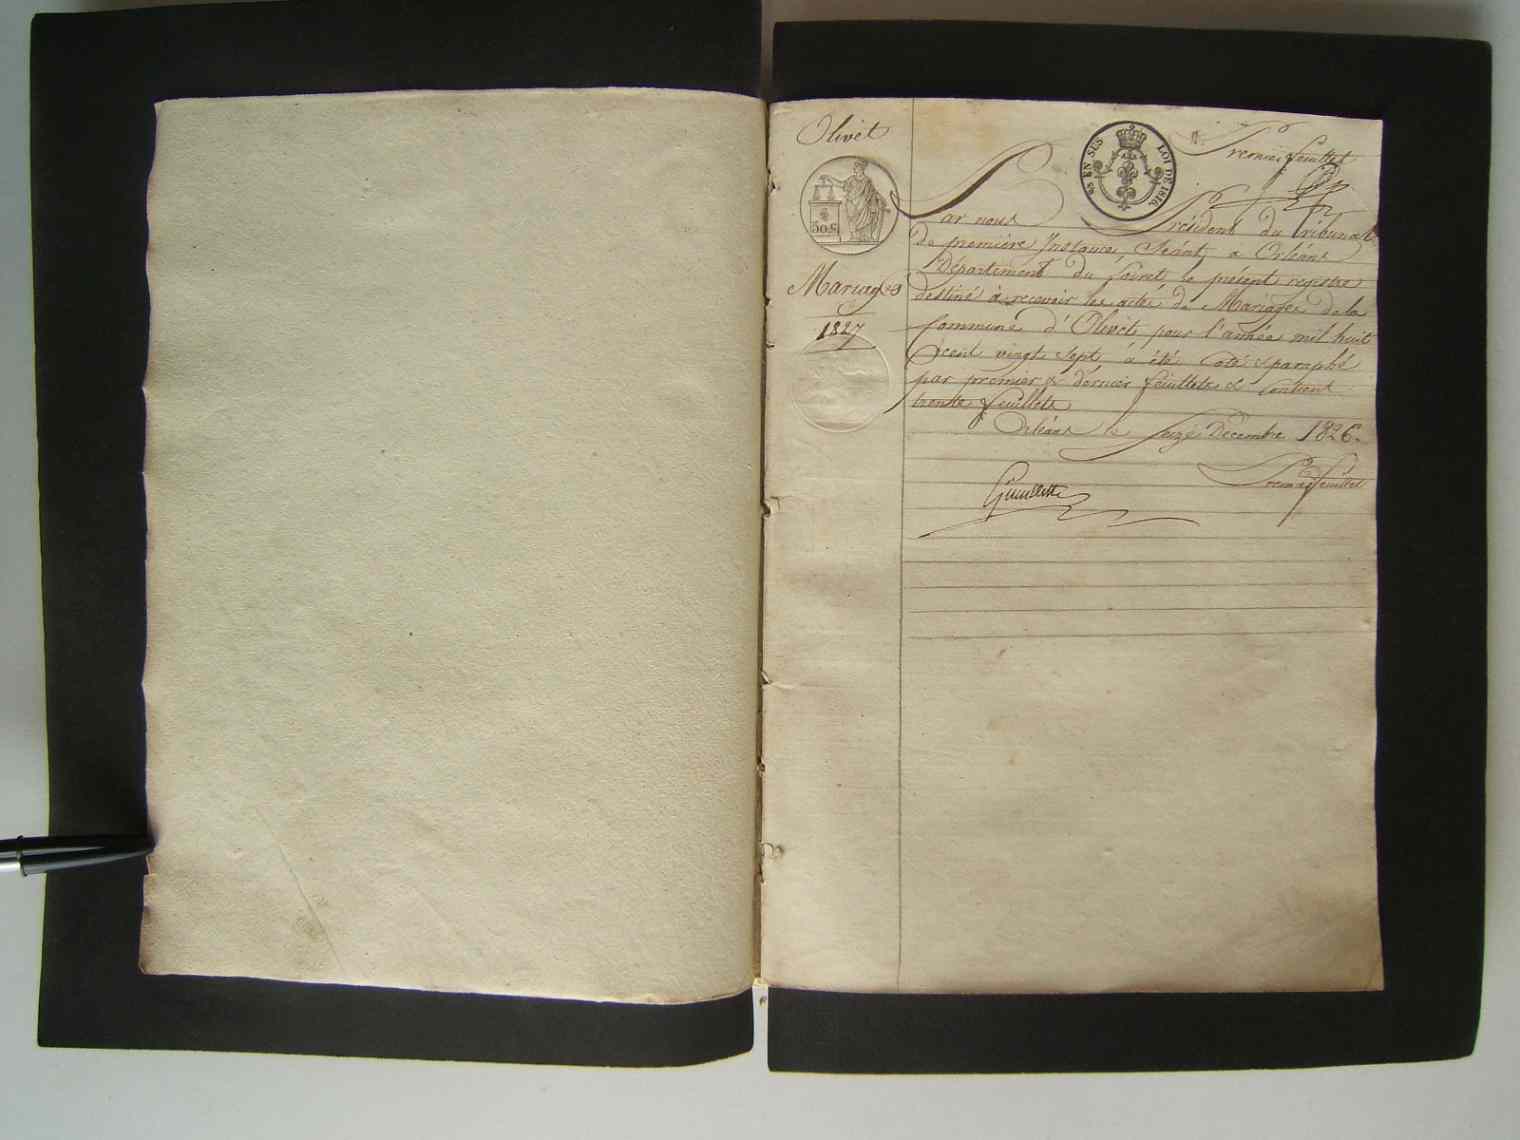 Olivet
50 c
Mariages
1827
¼ EN SUS
LOI DE 1816.
Premier feuillet
Par nous Président du tribunal
de première Instance, Séant, a Orléans
Département du Loiret, le présent registre
destiné à recevoir les actes de Mariages de la
Commune d'Olivet, pour l'année mil huit
cent vingt sept a été coté & paraphé
par premier & dernier feuillets & contient
trente feuillets
Orléans le Seize Décembre 1826.
Premier feuillet